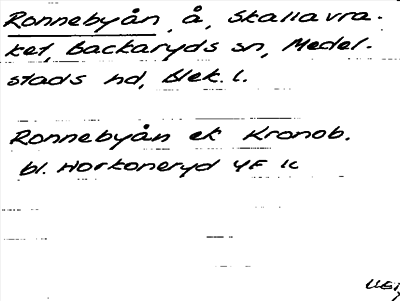 Ronnebyån, å, Skallavra-
ket, Backaryds sn, Medel-
stads hd, Blek. l.
Ronnebyån ek Kronob.
bl. Horkoneryd 4F 1c